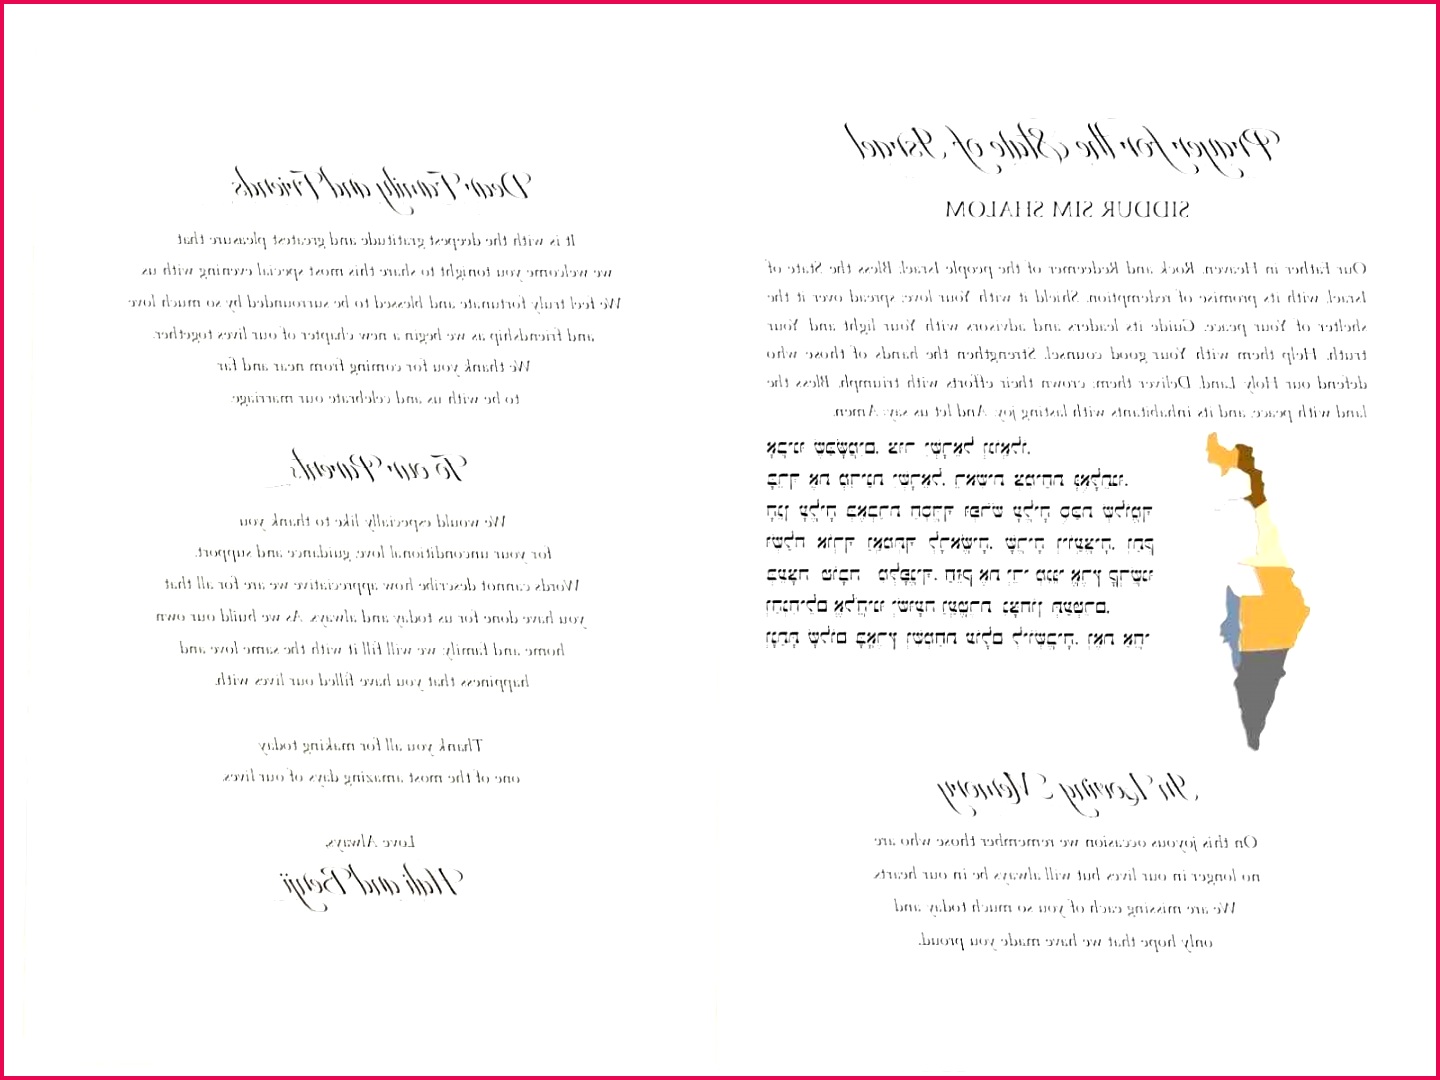 Prayer for the State of Israel
SIDDUR SIM SHALOM
Our Father in Heaven, Rock and Redeemer of the people Israel, Bless the State of
Israel, with its promise of redemption. Shield it with Your love; spread over it the
shelter of Your peace. Guide its leaders and advisors with Your light and Your
truth. Help them with Your good counsel. Strengthen the hands of those who
defend our Holy Land. Deliver them; crown their efforts with triumph. Bless the
land with peace, and its inhabitants with lasting joy. And let us say: Amen.
אבינו שבשמים, צור ישראל וגואלו,
ברך את מדינת ישראל, ראשית צמיחת גאולתנו.
הגן עליה באברת חסדך ופרש עליה סכת שלומך
ושלח אורך ואמתך לראשיה, שריה ויועציה, ותקנם
בעצה טובה מלפניך. חזק את ידי מגני ארץ קדשנו
והנחילם אלהינו ישועה ועטרת נצחון תעטרם.
ונתת שלום בארץ ושמחת עולם ליושביה, ונאמר אמן.
In Loving Memory
On this joyous occasion we remember those who are
no longer in our lives but will always be in our hearts
We are missing each of you so much today and
only hope that we have made you proud.
Dear Family and Friends
It is with the deepest gratitude and greatest pleasure that
we welcome you tonight to share this most special evening with us
We feel truly fortunate and blessed to be surrounded by so much love
and friendship as we begin a new chapter of our lives together.
We thank you for coming from near and far
to be with us and celebrate our marriage.
To our Parents
We would especially like to thank you
for your unconditional love, guidance and support.
Words cannot describe how appreciative we are for all that
you have done for us today and always. As we build our own
home and family, we will fill it with the same love and
happiness that you have filled our lives with.
Thank you all for making today
one of the most amazing days of our lives.
Love Always,
Hali and Benji